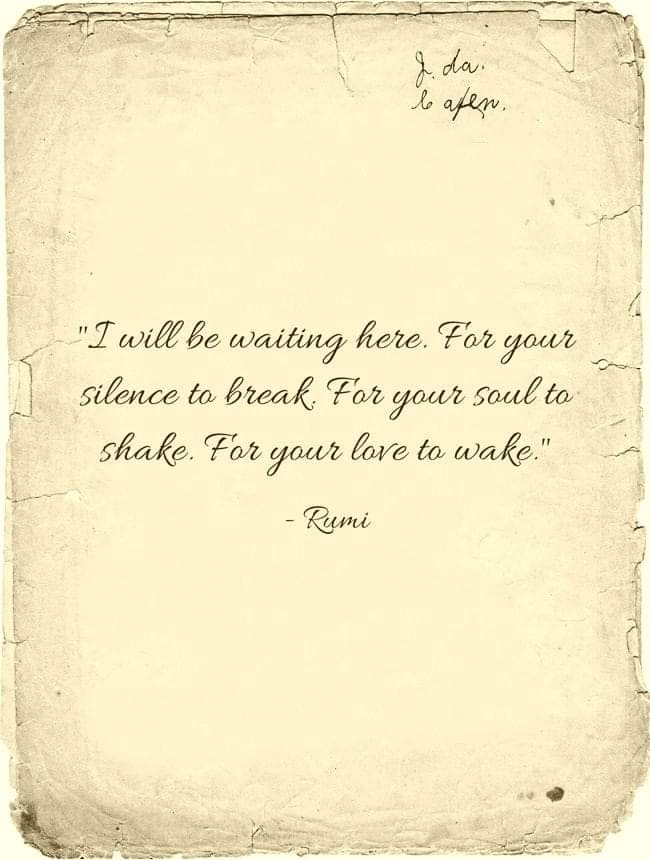 "I will be waiting here. For your
silence to break. For your soul to
shake. For your love to wake."
- Rumi